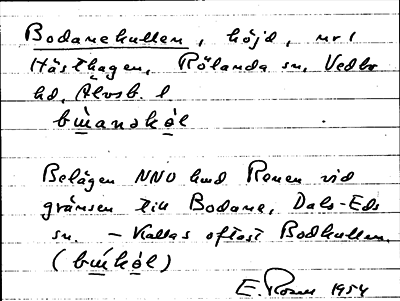 Bodanekullen, höjd, nr 1
Hästhagen, Rölanda sn, Vedbo
hd, Älvsb. l
bɯ̀anəkòl
Belägen NNO hmd Renen vid
gränsen till Bodane, Dals-Eds
sn. – Kallas oftast Bodkullen.
(bɯ́kòl)
E. Rosen 1954